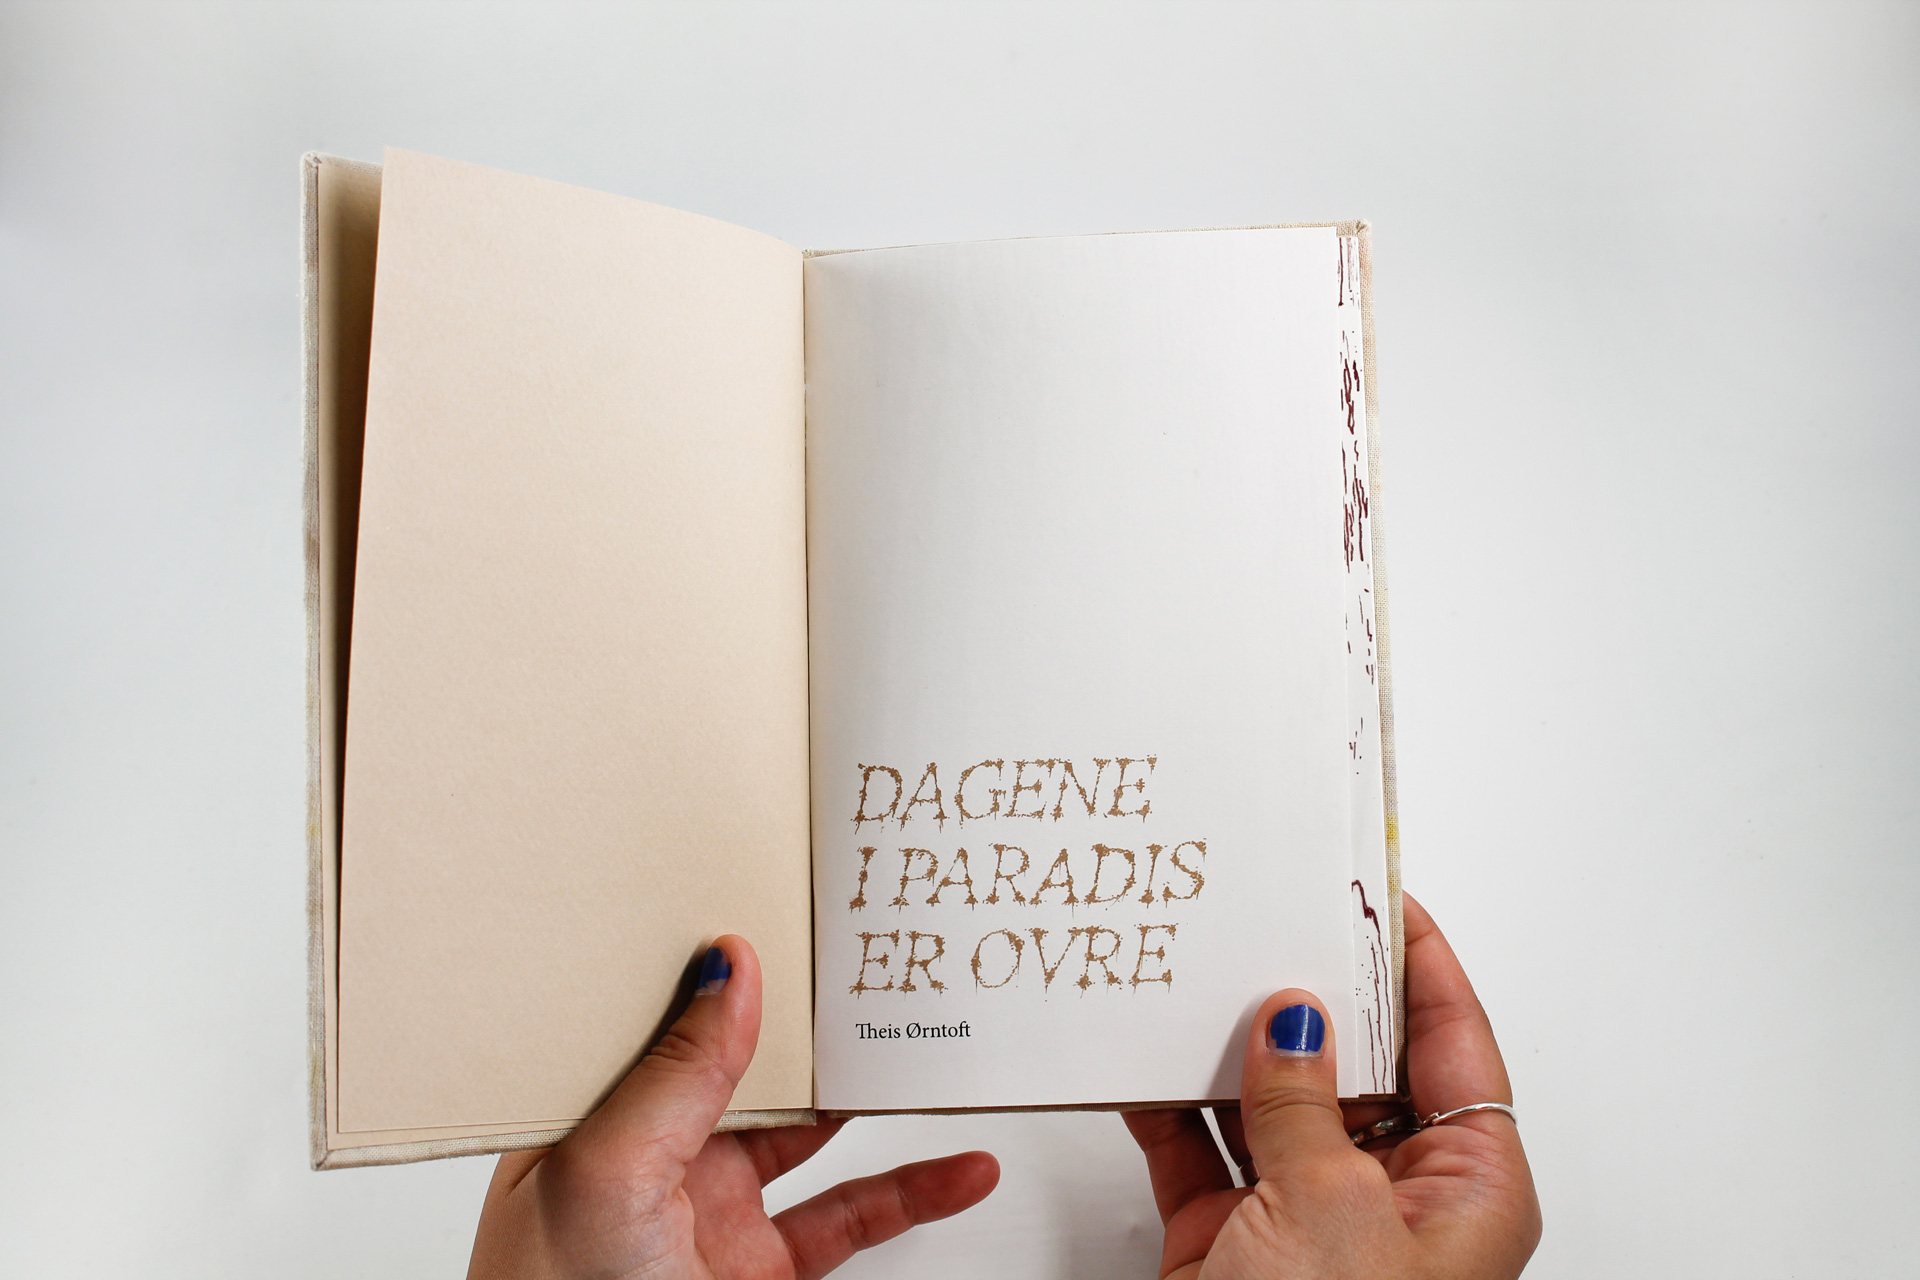 DAGENE
I PARADIS
ER OVRE
Theis Ørntoft